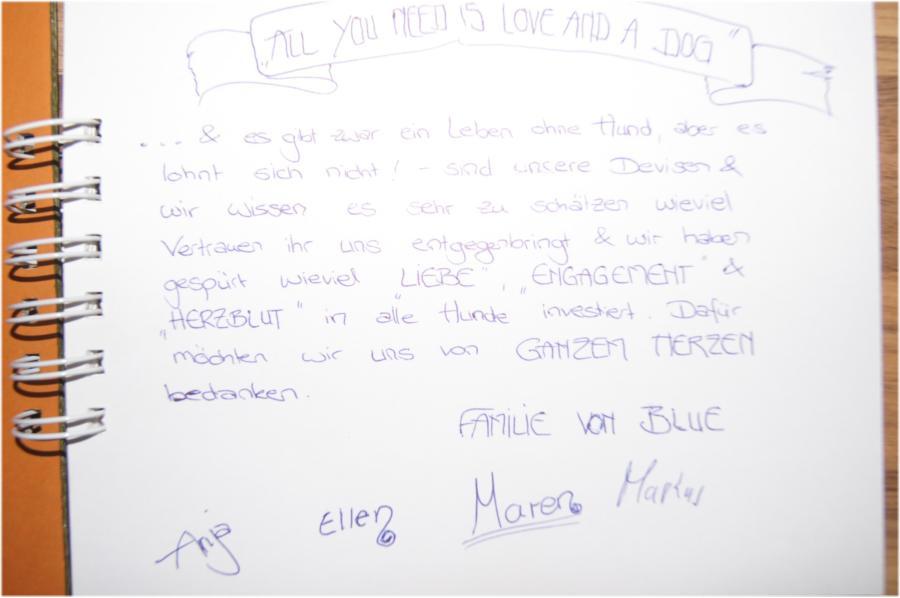 „ALL YOU NEED IS LOVE AND A DOG"
... & es gibt zwar ein Leben ohne Hund, aber es
lohnt sich nicht! - sind unsere Devisen &
wir wissen es sehr zu schätzen wieviel
Vertrauen ihr uns entgegenbringt & wir haben
gespürt wieviel „LIEBE", „ENGAGEMENT" &
„HERZBLUT" in alle Hunde investiert. Dafür
möchten wir uns von GANZEM HERZEN
bedanken.
FAMILIE VON BLUE
Anja Ellen Maren Markus